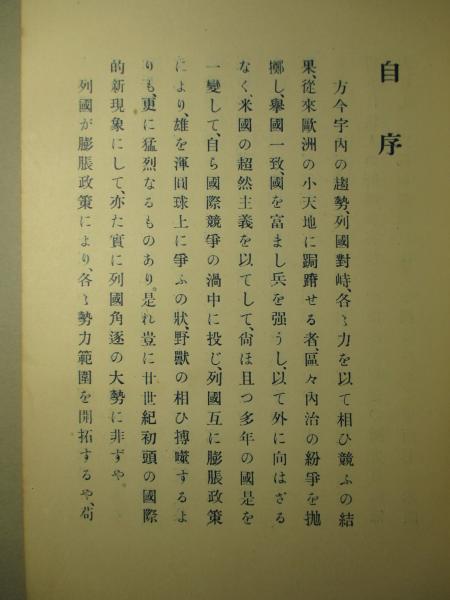 自序
方今宇內の趨勢、列國對峙、各〻力を以て相ひ競ふの結
果、從來歐洲の小天地に跼蹐せる者、區々內治の紛爭を拋
擲し、擧國一致、國を富まし兵を强うし、以て外に向はざる
なく、米國の超然主義を以てして、尙ほ且つ多年の國是を
一變して、自ら國際競爭の渦中に投じ、列國互に膨脹政策
により、雄を渾圓球上に爭ふの狀、野獸の相ひ搏噬するよ
りも、更に猛烈なるものあり。是れ豈に廿世紀初頭の國際
的新現象にして、亦た實に列國角逐の大勢に非ずや。
列國が膨脹政策により、各〻勢力範圍を開拓するや、苟